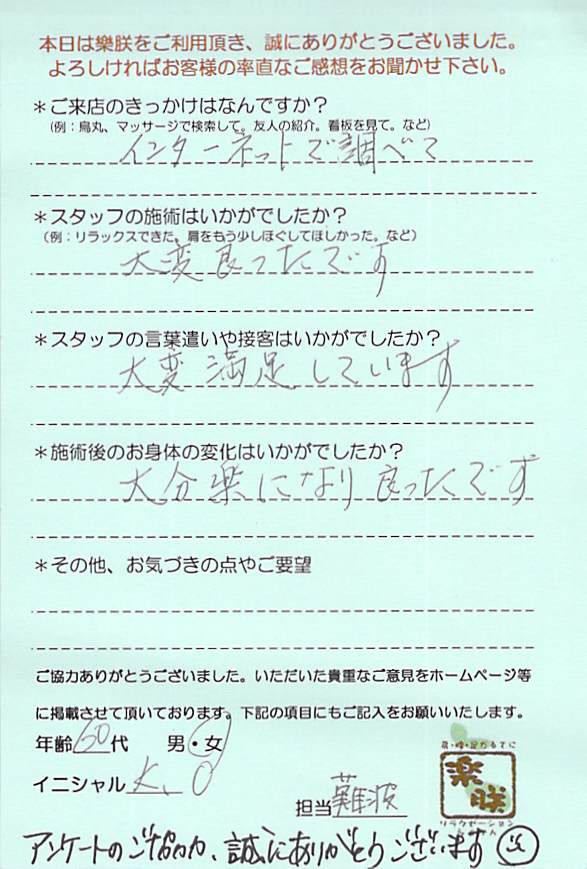 本日は樂朕をご利用頂き、誠にありがとうございました。
よろしければお客様の率直なご感想をお聞かせ下さい。
＊ご来店のきっかけはなんですか？
(例：烏丸、マッサージで検索して。友人の紹介。看板を見て。など)
インターネットで調べて
＊スタッフの施術はいかがでしたか？
(例：リラックスできた。肩をもう少しほぐしてほしかった。など)
大変良ったです
＊スタッフの言葉遣いや接客はいかがでしたか？
大変満足しています
＊施術後のお身体の変化はいかがでしたか？
大分楽になり良ったです
＊その他、お気づきの点やご要望
ご協力ありがとうございました。いただいた貴重なご意見をホームページ等
に掲載させて頂いております。下記の項目にもご記入をお願いいたします。
年齢50代 男・女
イニシャル K、O
担当 難波
楽
朕
リラクゼーション
アンケートのご協力、誠にありがとうございます